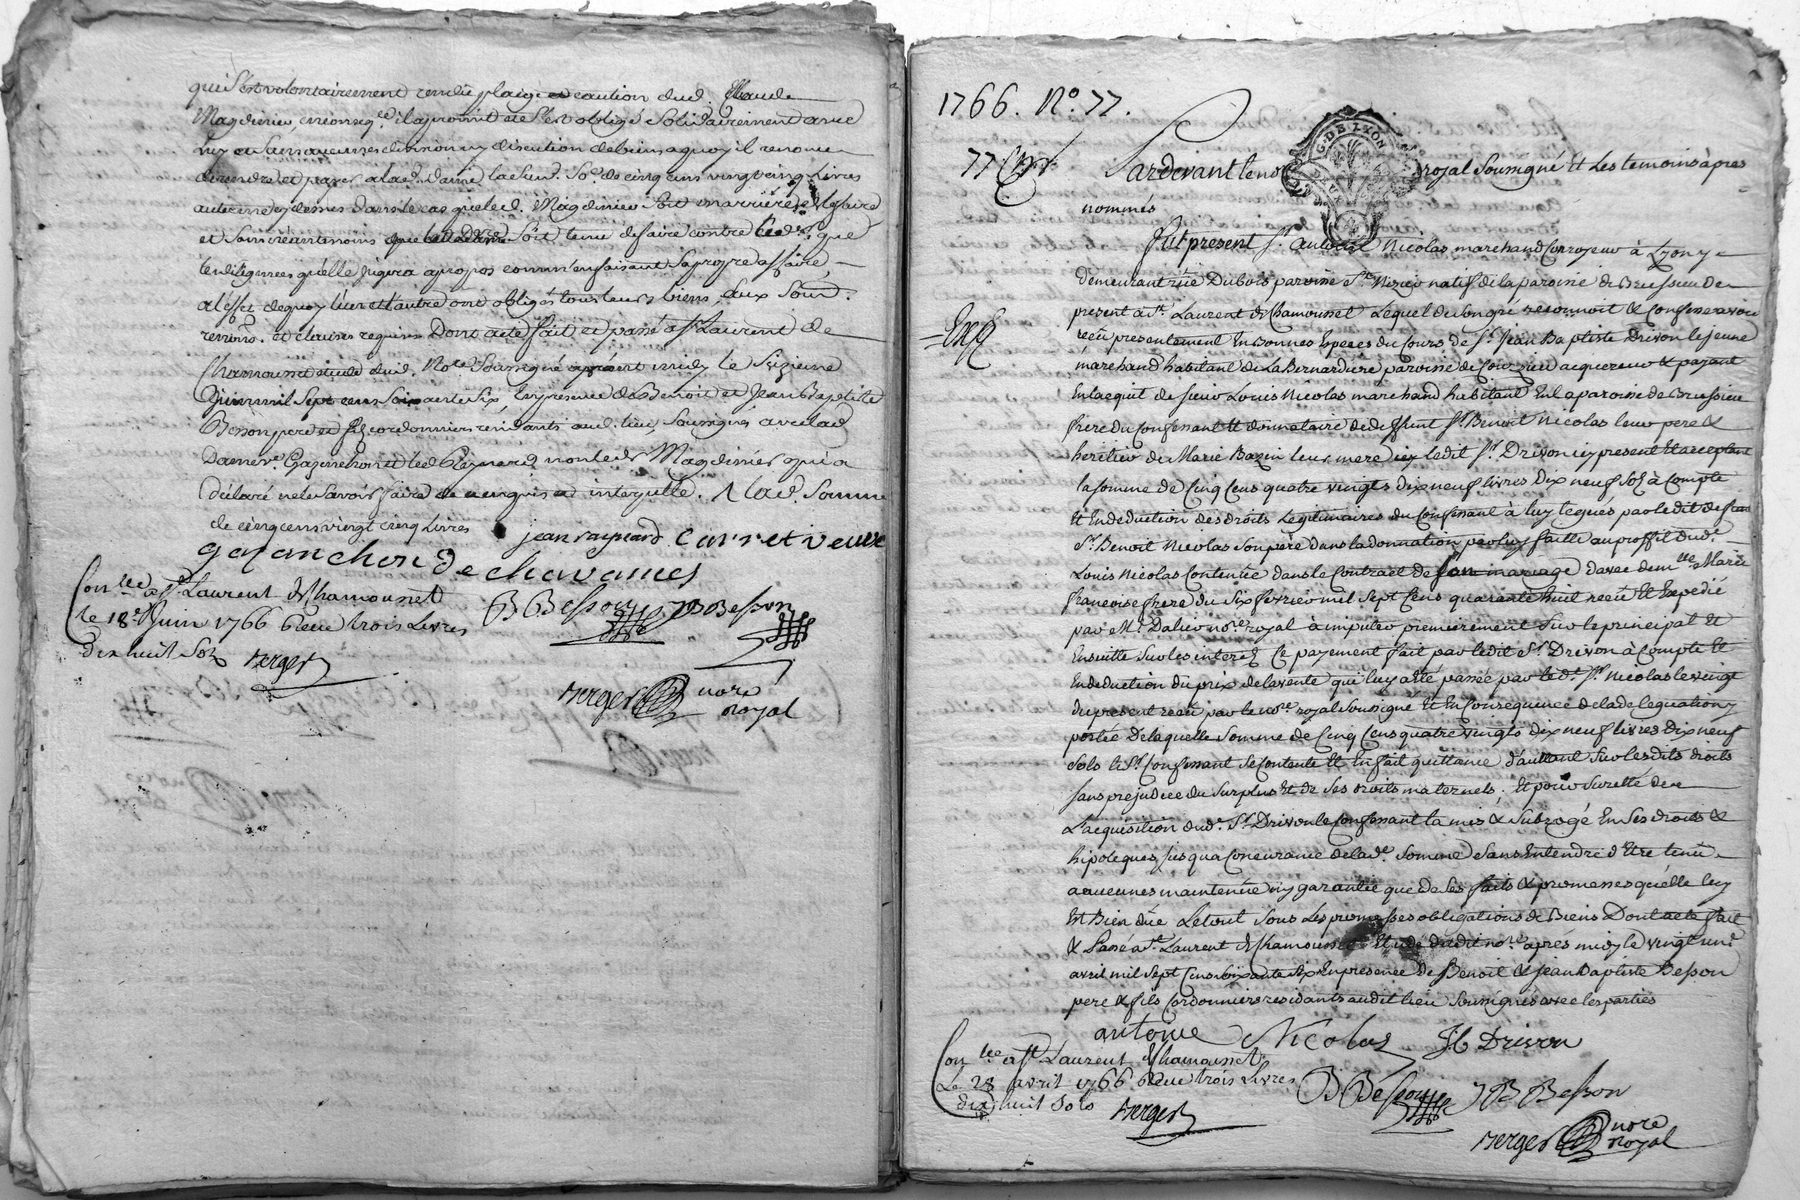 qui s'est volontairement rendu plaige et caution dud. Claude
Magdinier, en conseq.ce il a promit et s'est obligé solidairement avec
luy et sans aucunes division ny discution de biens a quoy il renonce
de rendre et payer a lad. dame lad. So.e de cinq cens vingt cinq livres
au terme cy dessus dans le cas que led. Magdinier soit
et sans néantmoins que soit tenue de faire contre led. que
les diligences qu'elle jugera apropos comme en faisant sa propre affaire,
a l'effet de quoy l'un et l'autre ont obligés tous leurs biens,
renonc. et clauses requises Dont acte fait et passé a St Laurent de
Chamousset etude dud. No.re Soussigné après midy le seizieme
Juin mil sept cens soixante six, en presence de Benoit et Jean Baptiste
Besson pere et fils cordonniers residants aud. lieu, soussignés avec lad.
Dame v.e Gayanchon et led Reynard non led. Magdinier qui a
déclaré ne le savoir faire de ce enquis et interpellé. / lad. somme
de cinq cens vingt cinq livres
jean raynard Carret veuve
gaÿanchon de chavannes
Con.lée a St Laurent de Chamousset
le 18.e Juin 1766 Reçu trois Livres
dix huit Sols Verger
B Besson JB Besson
Verger nore
Royal
1766. N.o 77.
77 Con
Pardevant le no royal Soussigné Et Les temoins après
nommés
Fut present Sr. antoine Nicolas marchand Corroyeur à Lyon y
demeurant rüe Dubois paroisse St. Nizier natif de la paroisse de Brussieu de
present à St. Laurent de Chamousset Lequel de Son gré reconnoit & Confesse avoir
Exp
recu presentement En bonnes Especes du Cours de Sr. Jean Baptiste Drivon le jeune
marchand habitant de La Bernardiere paroisse de Courzieu acquereur & payant
En lacquit de sieur Louis Nicolas marchand habitant En la paroisse de Brussieu
frere du Confessant Et donnataire de deffunt Sr. Benoit Nicolas leur pere &
heritier de Marie Bazin leur mere icy ledit Sr. Drivon icy present Et acceptant
la somme de Cinq Cens quatre vingts dix neuf livres Dix neuf Sols à Compte
Et En deduction des droits Legitimaires du Confessant à luy legués par ledit deffunt
Sr. Benoit Nicolas Son père dans la donnation par luy faitte au proffit dud.
Louis Nicolas Contenüe dans le Contract de son mariage d'avec dem.lle Marie
francoise frere du Six fevrier mil Sept Cens quarante huit reçu Et Expedié
par M.e Dalier no.re royal à imputer premierement Sur le principal Et
Ensuitte Sur les interets Ce payement fait par ledit Sr. Drivon à Compte Et
En deduction du prix de la vente qui luy a eté passée par led. Sr. Nicolas le vingt
du present recüe par le no.re royal Soussigné Et En Consequence de la delegation y
portée De laquelle Somme de Cinq Cens quatre vingts dix neuf livres dix neuf
Sols le Sr. Confessant Se Contente Et En fait quittance d'auttant Sur lesdits droits
sans prejudice du Surplus Et de Ses droits maternels. Et pour Sureté de
L'acquisition dud. Sr. Drivon le Confessant l'a mis & Subrogé En Ses droits &
hipoteques jusqua Concurance de lad.e Somme Sans Entendre d'Etre tenu
a aucunes maintenüe ny garantie que de Ses faits & promesses qu'elle luy
Est Bien düe Le tout Sous Les promesses obligations de Biens Dont acte fait
& Passé a St. Laurent de Chamousset Etude dudit no.re après midy le vingt un.e
avril mil Sept Cens Soixante Six En presence de Benoit & jean Baptiste Besson
pere & fils Cordonniers residants audit lieu Soussignés avec les parties
antoine Nicolas JB Drivon
Con.lée a St Laurent de Chamousset
Le 28 avril 1766 Reçu trois Livres
dix huit Sols Verger
B Besson JB Besson
Verger nore
Royal